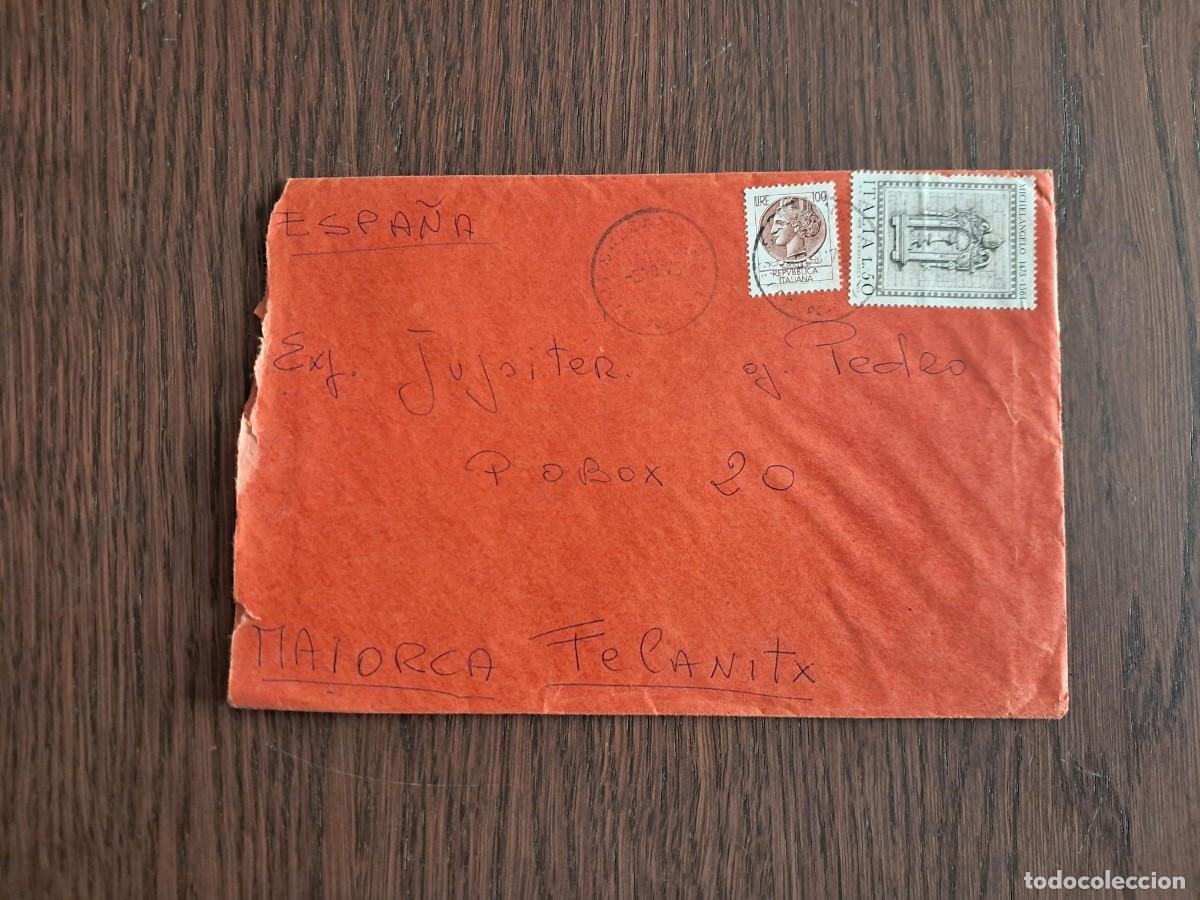 ESPAÑA
LIRE 100
REPVBBLICA
ITALIANA
MICHELANGELO 1475-1564
ITALIA L.50
Jupiter. Pedro
POBOX 20
MAIORCA FelANitx
todocoleccion